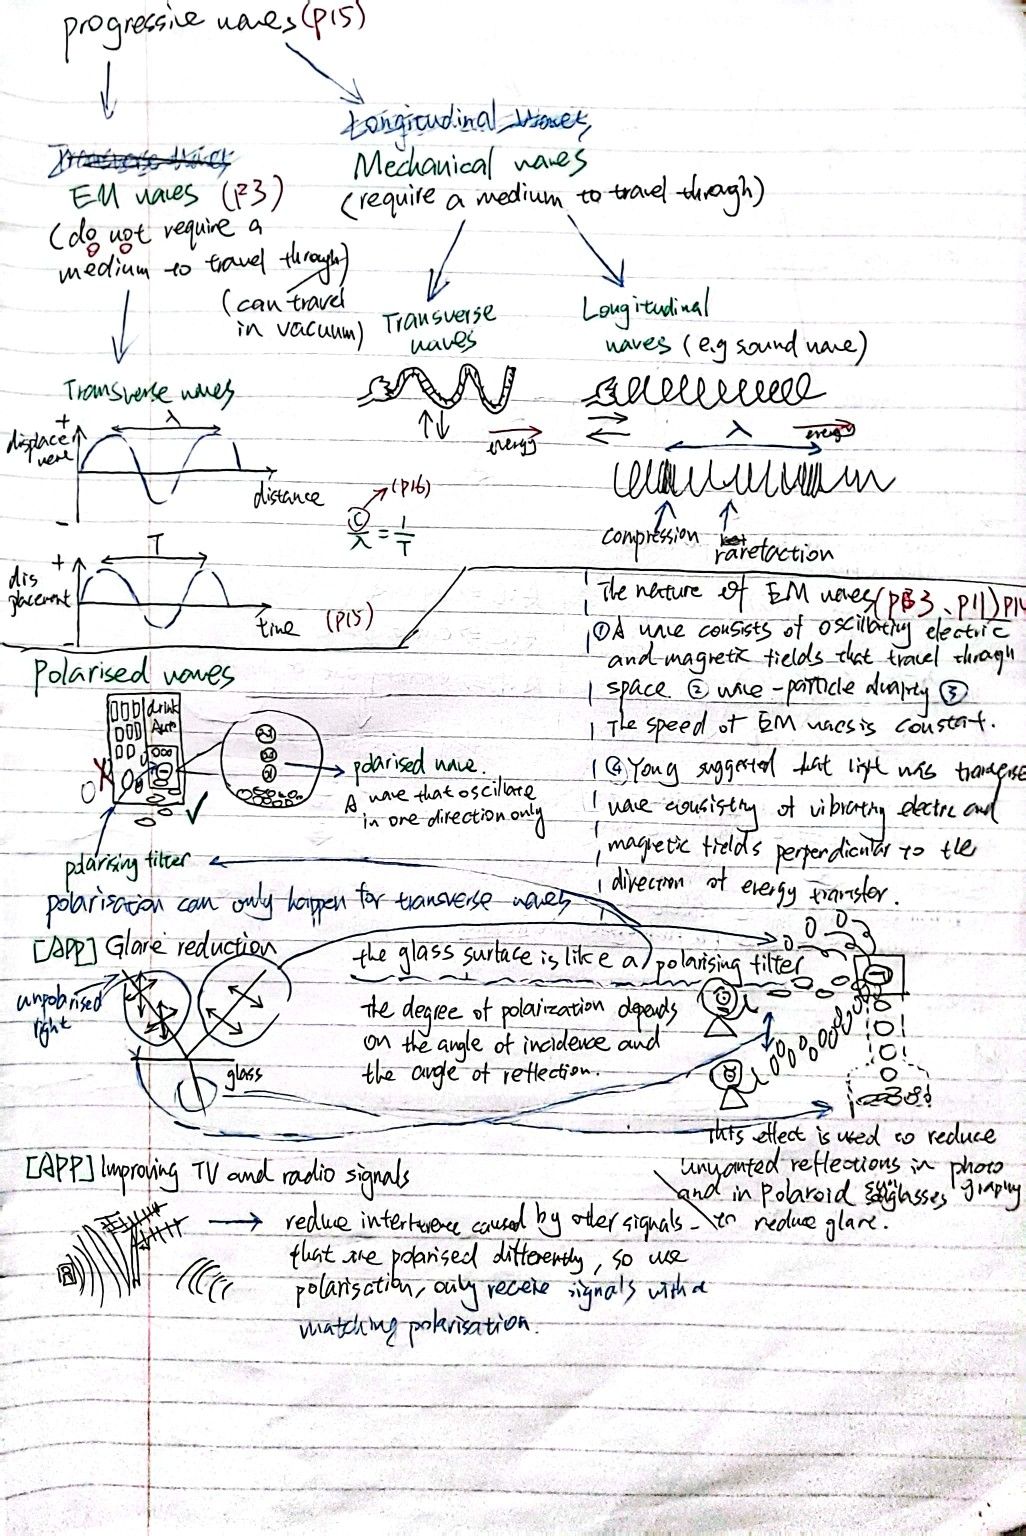 progressive waves (p15)
Longitudinal waves
Transverse waves
Mechanical waves
(require a medium to travel through)
EM waves (P3)
(do not require a
medium to travel through)
(can travel
in vacuum)
Transverse
waves
Longitudinal
waves (e.g sound wave)
Transverse waves
+
λ
displace
ment
distance
-
energy
λ
energy
(p16)
c/λ = 1/T
compression
rarefaction
+
T
dis
placement
time (p15)
-
The nature of EM waves (p3、p11) p14
① A wave consists of oscillating electric
and magnetic fields that travel through
space ② wave-particle duality ③
The speed of EM waves is constant.
④ Young suggested that light was transverse
wave consisting of vibrating electric and
magnetic fields perpendicular to the
direction of energy transfer.
Polarised waves
drink
polarised wave.
A wave that oscillate
in one direction only
polarising filter
polarisation can only happen for transverse waves
[APP] Glare reduction
the glass surface is like a polarising filter
unpolarised
light
the degree of polarization depends
on the angle of incidence and
the angle of reflection.
glass
This effect is used to reduce
unwanted reflections in photo
graphy
and in Polaroid sunglasses
to reduce glare.
[APP] Improving TV and radio signals
reduce interference caused by other signals
that are polarised differently, so use
polarisation, only receive signals with a
matching polarisation.